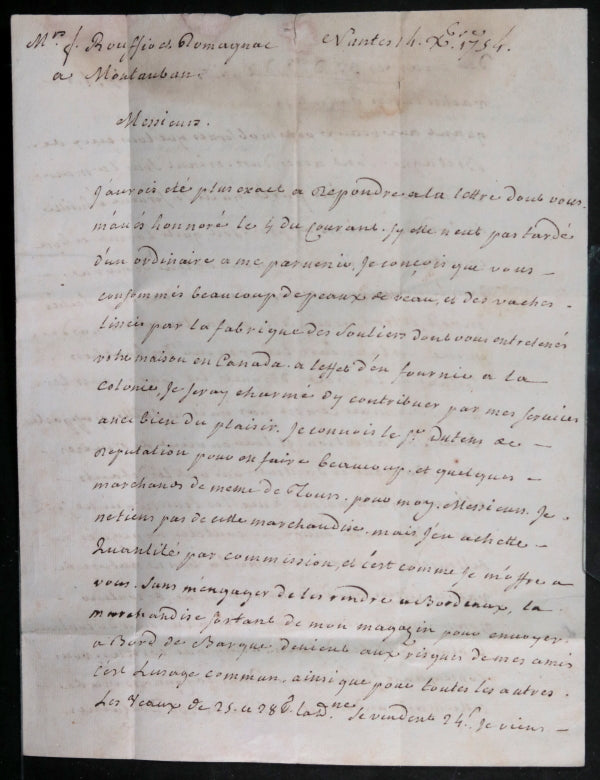 Mrs. f. Rouffio et Domagnac Nantes 14. Xbre. 1754.
a Montauban
Messieurs.
J'aurois été plus exact a Repondre a la lettre dont vous
m'avés honnoré le 4 du Courant. Sy elle neut pas tardé
d'un ordinaire a me parvenir, Je conçois que vous –
consommés beaucoup de peaux de veau, et des vaches
lissées par la fabrique des Souliers dont vous entretenés
votre maison en Canada. a leffet d'en fournir a la
Colonie, Je Seray charmé d'y contribuer par mes services
avec bien du plaisir. Je connois le Sr. Dutens de –
Reputation pour en faire beaucoup. et quelques –
marchands de meme de Tours. pour moy. Messieurs. Je
ne tiens pas de cette marchandise, mais J'en achette –
Quantité par commission, et c'est comme Je m'offre a
vous. Sans m'engager de les rendre a Bordeaux, la
marchandise sortant de mon magazin pour envoyer
a Bord de Barque devient aux risques de mes amis
c'est Lusage commun, ainsi que pour toutes les autres.
Les Veaux de 25. a 28 lt. la dne. se vendent 24 s. Je viens –